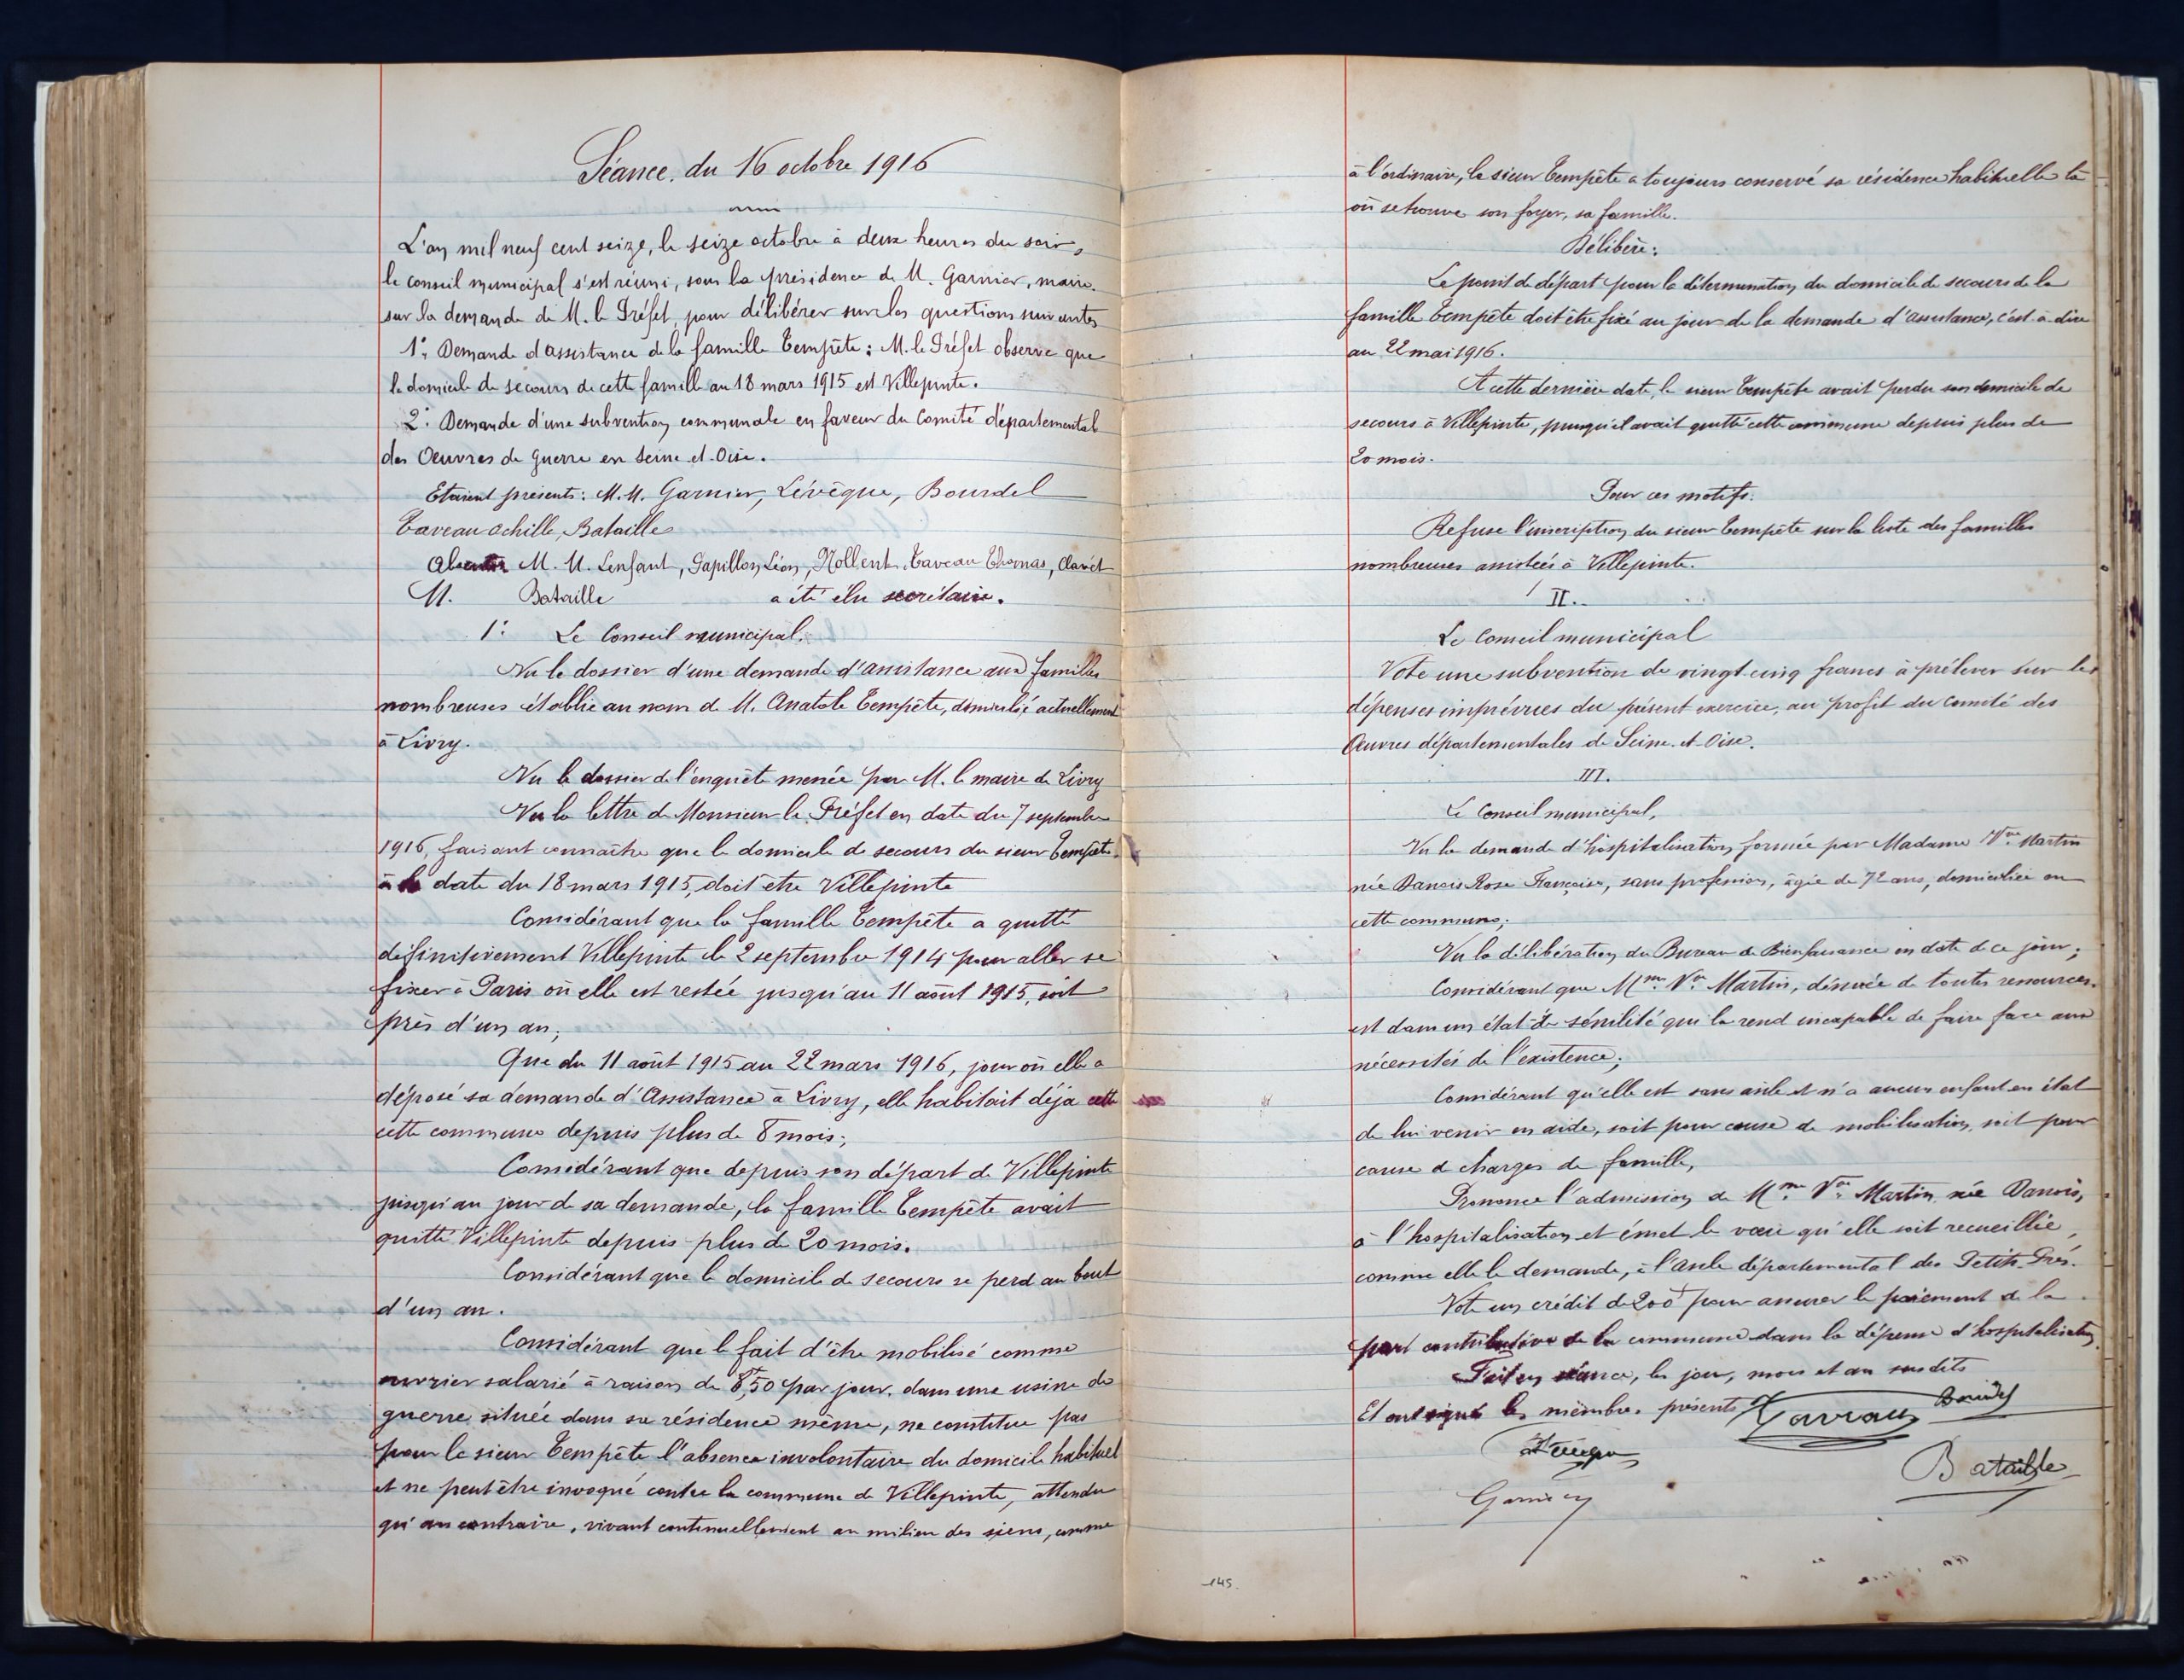 Séance du 16 octobre 1916
L'an mil neuf cent seize, le seize octobre à deux heures du soir,
le conseil municipal s'est réuni, sous la présidence de M. Garnier, maire.
sur la demande de M. le Préfet, pour délibérer sur les questions suivantes
1° Demande d'assistance de la famille Tempête : M. le Préfet observe que
le domicile de secours de cette famille au 18 mars 1915 est Villepinte.
2° Demande d'une subvention communale en faveur du Comité départemental
des Oeuvres de Guerre en Seine-et-Oise.
Etaient présents : M.M. Garnier, Lévêque, Bourdel
Taveau Achille, Bataille
Absents M. M. Lenfant, Papillon Léon, Mollent, Taveau Thomas, Clarêt
M. Bataille a été élu secrétaire.
1° Le Conseil municipal.
Vu le dossier d'une demande d'assistance aux familles
nombreuses établie au nom de M. Anatole Tempête, domicilié actuellement
à Livry.
Vu le dossier de l'enquête menée par M. le maire de Livry
Vu la lettre de Monsieur le Préfet en date du 7 septembre
1916, faisant connaître que le domicile de secours du sieur Tempête.
à la date du 18 mars 1915, doit être Villepinte
Considérant que la famille Tempête a quitté
définitivement Villepinte le 2 septembre 1914 pour aller se
fixer à Paris où elle est restée jusqu'au 11 août 1915, soit
près d'un an ;
Que du 11 août 1915 au 22 mars 1916, jour où elle a
déposé sa demande d'Assistance à Livry, elle habitait déja cette
cette commune depuis plus de 8 mois ;
Considérant que depuis son départ de Villepinte
jusqu'au jour de sa demande, la famille Tempête avait
quitté Villepinte depuis plus de 20 mois.
Considérant que le domicile de secours se perd au bout
d'un an.
Considérant que le fait d'être mobilisé comme
ouvrier salarié à raison de 8f,50 par jour, dans une usine de
guerre située dans sa résidence même, ne constitue pas
pour le sieur Tempête l'absence involontaire du domicile habituel
et ne peut être invoqué contre la commune de Villepinte, attendu
qu'au contraire, vivant continuellement au milieu des siens, comme
à l'ordinaire, le sieur Tempête a toujours conservé sa résidence habituelle là
où se trouve son foyer, sa famille.
Délibère :
Le point de départ pour la détermination du domicile de secours de la
famille Tempête doit être fixé au jour de la demande d'assistance, c'est-à-dire
au 22 mai 1916.
A cette dernière date, le sieur Tempête avait perdu son domicile de
secours à Villepinte, puisqu'il avait quitté cette commune depuis plus de
20 mois.
Pour ces motifs.
Refuse l'inscription du sieur Tempête sur la liste des familles
nombreuses assistées à Villepinte.
II.
Le Conseil municipal
Vote une subvention de vingt-cinq francs à prélever sur les
dépenses imprévues du présent exercice, au profit du Comité des
Œuvres départementales de Seine-et-Oise.
III.
Le Conseil municipal,
Vu la demande d'hospitalisation formée par Madame Vve Martin
née Danois Rose Françoise, sans profession, âgée de 72 ans, domiciliée en
cette commune ;
Vu la délibération du Bureau de Bienfaisance en date de ce jour ;
Considérant que Mme Vve Martin, dénuée de toutes ressources.
est dans un état de sénilité qui la rend incapable de faire face aux
nécessités de l'existence ;
Considérant qu'elle est sans aide et n'a aucun enfant en état
de lui venir en aide, soit pour cause de mobilisation, soit pour
cause de charges de famille,
Prononce l'admission de Mme Vve Martin née Danois,
à l'hospitalisation et émet le vœu qu'elle soit recueillie,
comme elle le demande, à l'asile départemental des Petits-Prés.
Vote un crédit de 200f pour assurer le paiement de la
part contributive de la commune dans la dépense d'hospitalisation
Fait en séance, les jour, mois et an susdits
Et ont signé les membres présents
Taveau
Bourdel
Lévêque
Bataille
Garnier
145.